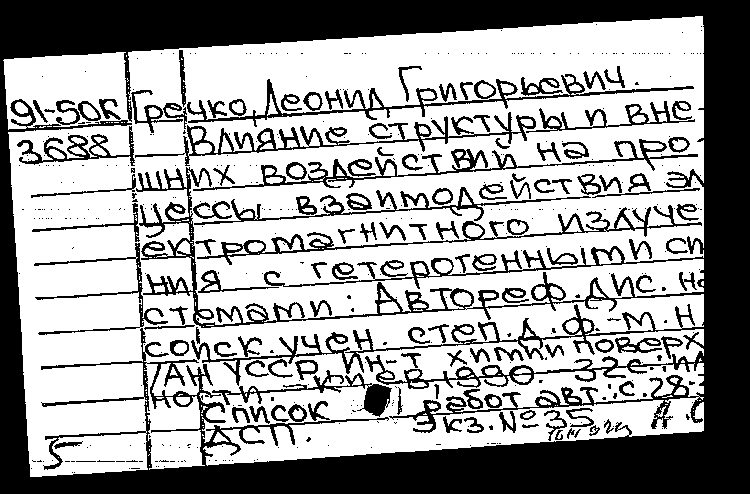 91-50К Гречко, Леонид Григорьевич.
3688 Влияние структуры и вне-
шних воздействий на про-
цессы взаимодействия эл
ектромагнитного излуче
ния с гетерогенными си
стемами: Автореф. дис. на
соиск. учен. степ. д.ф.-м.н.
/АН УССР, Ин-т химии поверх
ности. - Киев, 1990. - 32 с.: ил
Список работ авт.: с. 28-3
ДСП. Экз. № 35
5